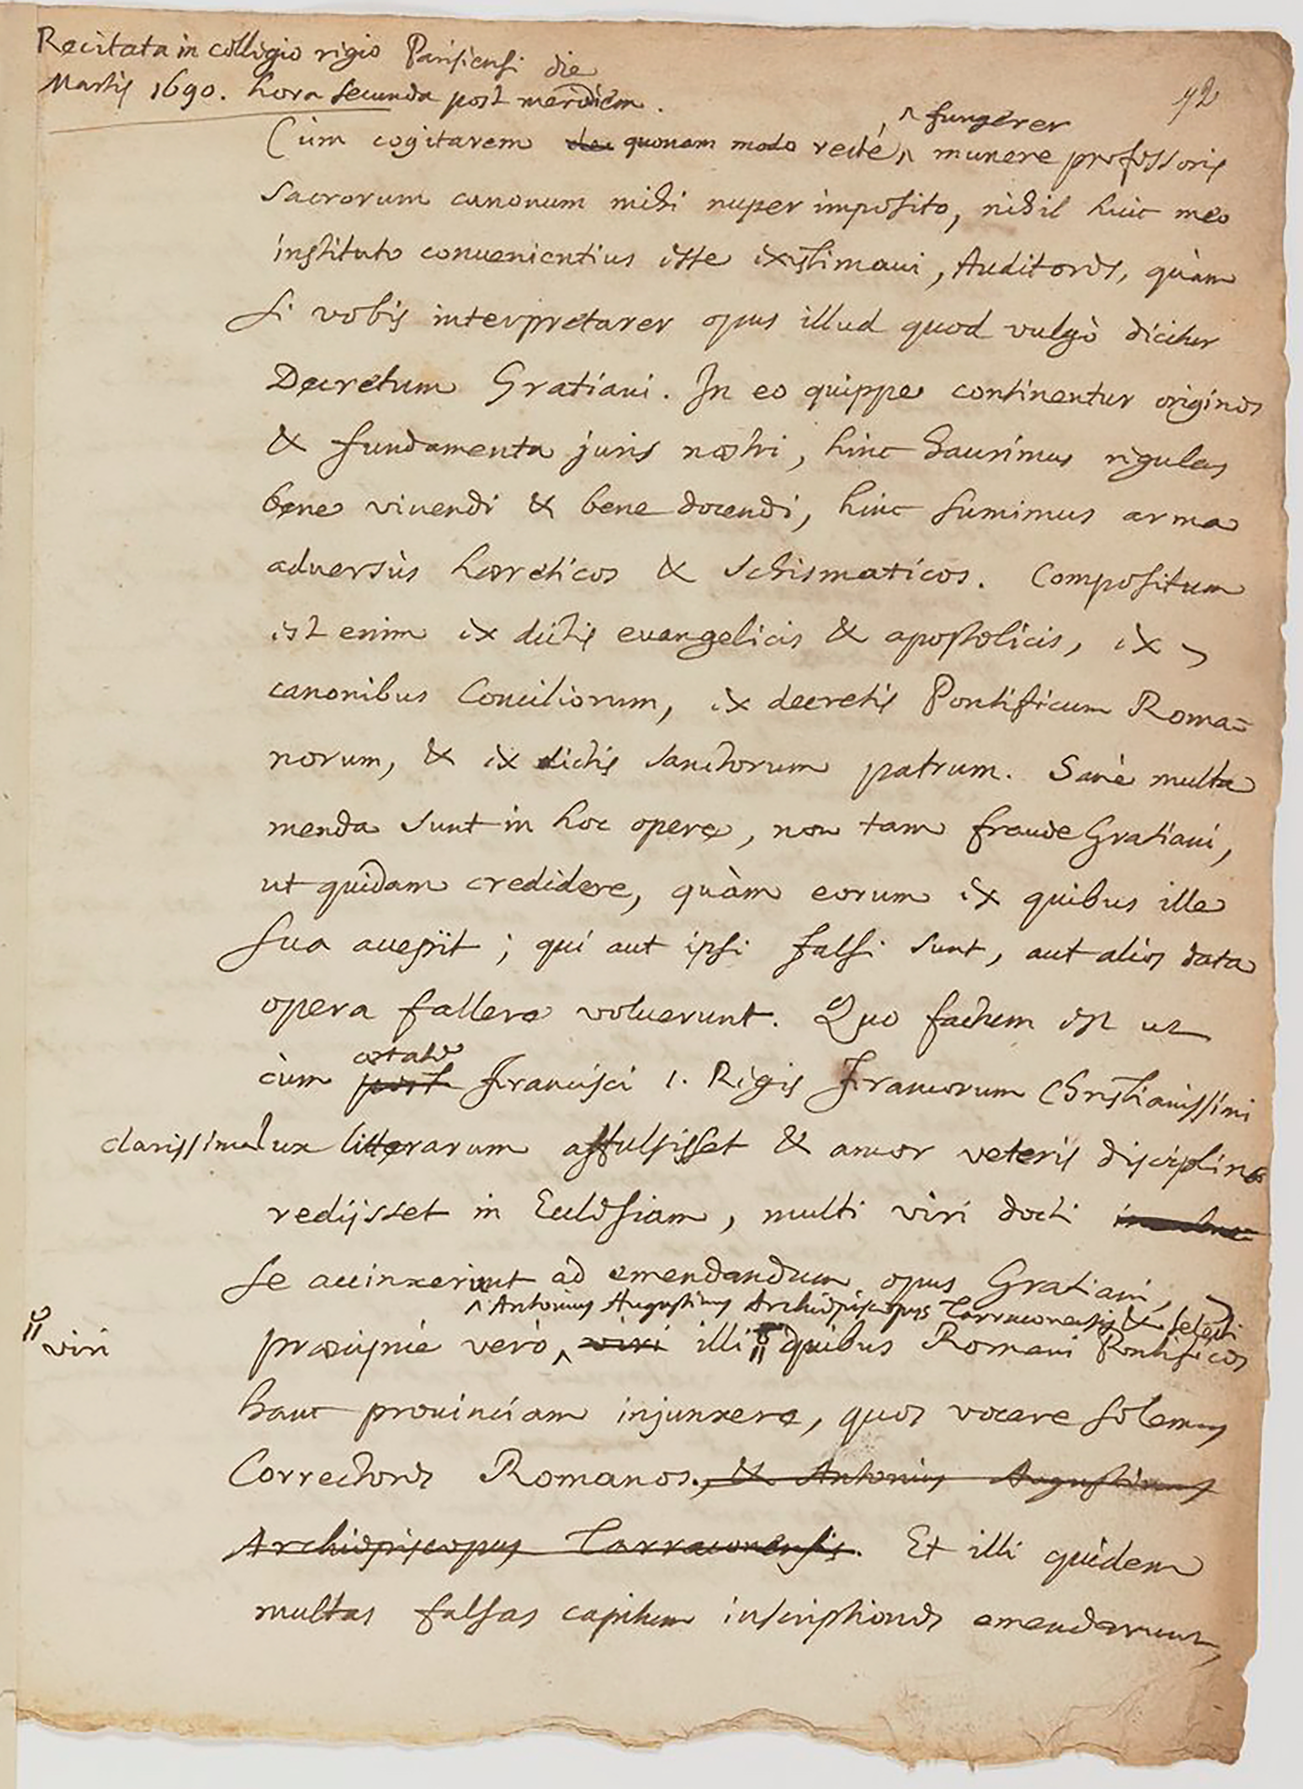 Recitata in collegio regio Parisiensi die
Martis 1690. hora secunda post meridiem.
92
^ fungerer
Cùm cogitarem quonam modo rectè, ^ munere professoris
sacrorum canonum mihi nuper imposito, nihil huic meo
instituto conuenientius esse existimaui, Auditores, quàm
si vobis interpretarer opus illud quod vulgò dicitur
Decretum Gratiani. In eo quippe continentur origines
& fundamenta juris nostri, hinc haurimus regulas
bene viuendi & bene docendi, hinc sumimus arma
aduersùs haereticos & schismaticos. Compositum
est enim ex dictis euangelicis & apostolicis, ex
canonibus Conciliorum, ex decretis Pontificum Roma=
norum, & ex dictis sanctorum patrum. Sanè multa
menda sunt in hoc opere, non tam fraude Gratiani,
ut quidam credidere, quàm eorum ex quibus ille
sua accepit; qui aut ipsi falsi sunt, aut alios data
opera fallere voluerunt. Quo factum est ut
aetate
cùm post Francisci 1. Regis Francorum Christianissimi
clarissima lux litterarum affulsisset & amor veteris disciplinae
redijsset in Ecclesiam, multi viri docti
se accinxerunt ad emendandum opus Gratiani,
^ Antonius Augustinus Archiepiscopus Tarraconensis & selecti
viri
praecipuè verò, ^ viri illi quibus Romani Pontifices
hanc prouinciam injunxere, quos vocare solemus
Correctores Romanos., & Antonius Augustinus
Archiepiscopus Tarraconensis. Et illi quidem
multas falsas capitum inscriptiones emendarunt,